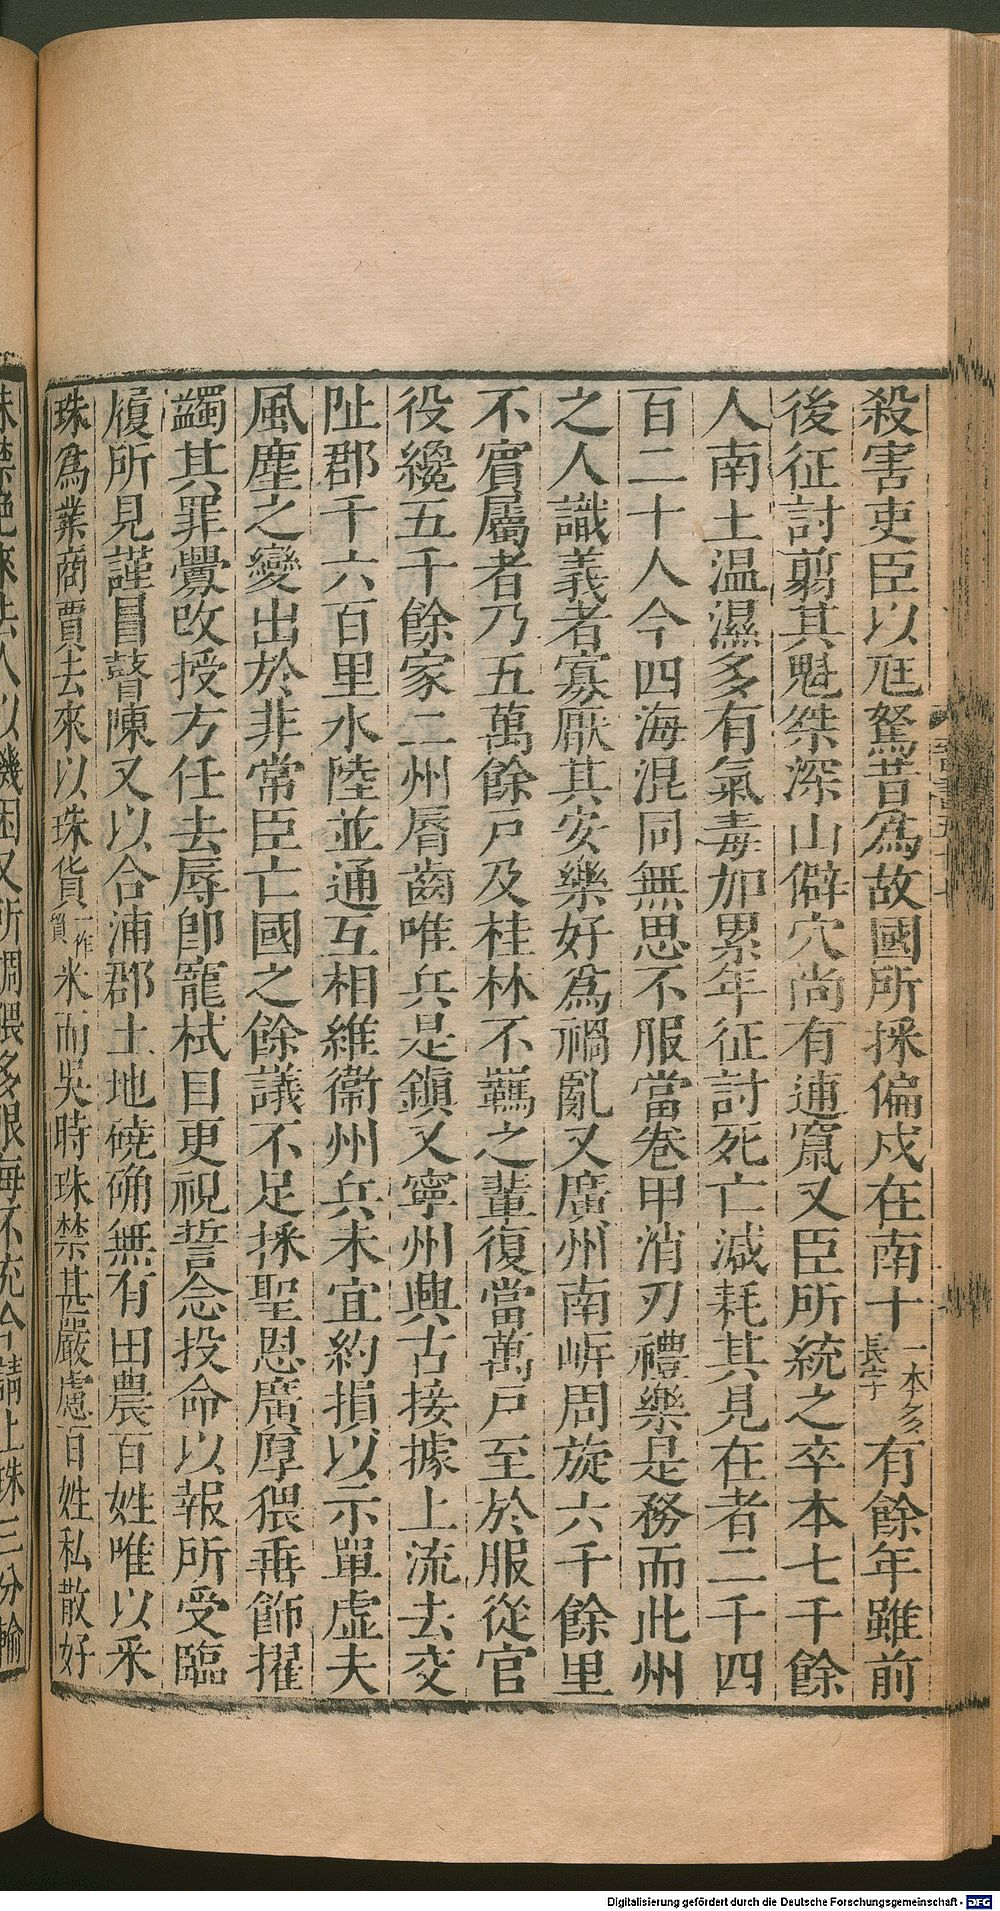 殺害吏臣以尫駑昔爲故國所採偏戍在南十一本多長字有餘年雖前
後征討翦其魁桀深山僻穴尚有逋竄又臣所統之卒本七千餘
人南土温濕多有氣毒加累年征討死亡減耗其見在者二千四
百二十人今四海混同無思不服當卷甲消刃禮樂是務而此州
之人識義者寡厭其安樂好爲禍亂又廣州南岍周旋六千餘里
不賓屬者乃五萬餘戸及桂林不羈之輩復當萬戸至於服從官
役纔五千餘家二州脣齒唯兵是鎮又寧州興古接據上流去交
阯郡千六百里水陸並通互相維衞州兵未宜約損以示單虛夫
風塵之變出於非常臣亡國之餘議不足採聖恩廣厚猥垂飾擢
蠲其罪釁改授方任去辱即寵拭目更視誓念投命以報所受臨
履所見謹冒瞽陳又以合浦郡土地磽确無有田農百姓唯以采
珠爲業商賈去來以珠貨一作貿米而吳時珠禁甚嚴慮百姓私散好
珠禁絶來去人以饑困又所調猥多限每不充今請上珠三分輸
Digitalisierung gefördert durch die Deutsche Forschungsgemeinschaft - DFG